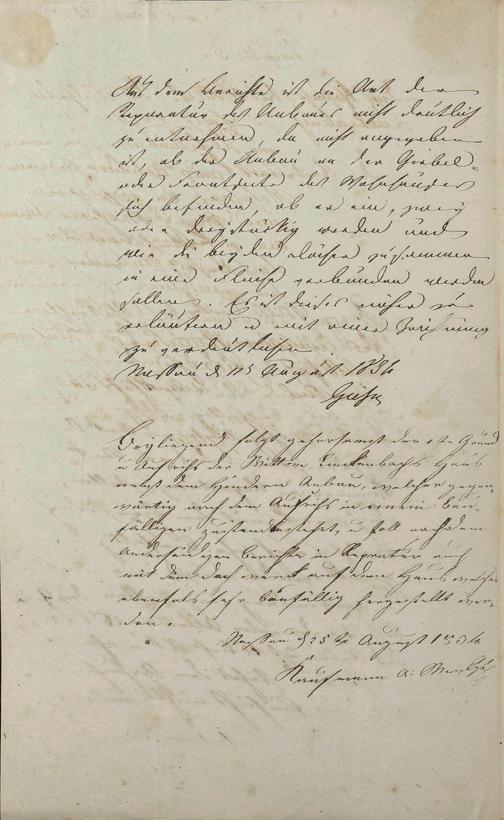 Aus dem Berichte ist die Art der
Reparatur des Anbaues nicht deutlich
zu entnehmen, da nicht angegeben
ist, ob der Anbau an der Giebel-
oder Frontseite des Wohnhauses
sich befindet, ob er ein, zwey
oder dreystöckig werden und
wie die beyden Dächer zusammen
in eine Fläche verbunden werden
sollen. Es ist dieses näher zu
erläutern u mit einer Zeichnung
zu verdeutlichen
Nassau d 11t August 1834
Beyliegend folgt gehorsamst der Grund
u Aufriss der Wittwe Linkenbachs Haus
nebst dem hindern Anbau, welcher gegen
wärtig nach dem Aufriss in einem bau
fälligen Zustand bestehet, u soll nach dem
anderseitigen Berichte in Reparatur auch
mit dem Dach werk auf dem Haus welches
ebenfals sehr baufällig hergestellt wer
den.
Nassau d 25t August 1834
Kaufmann